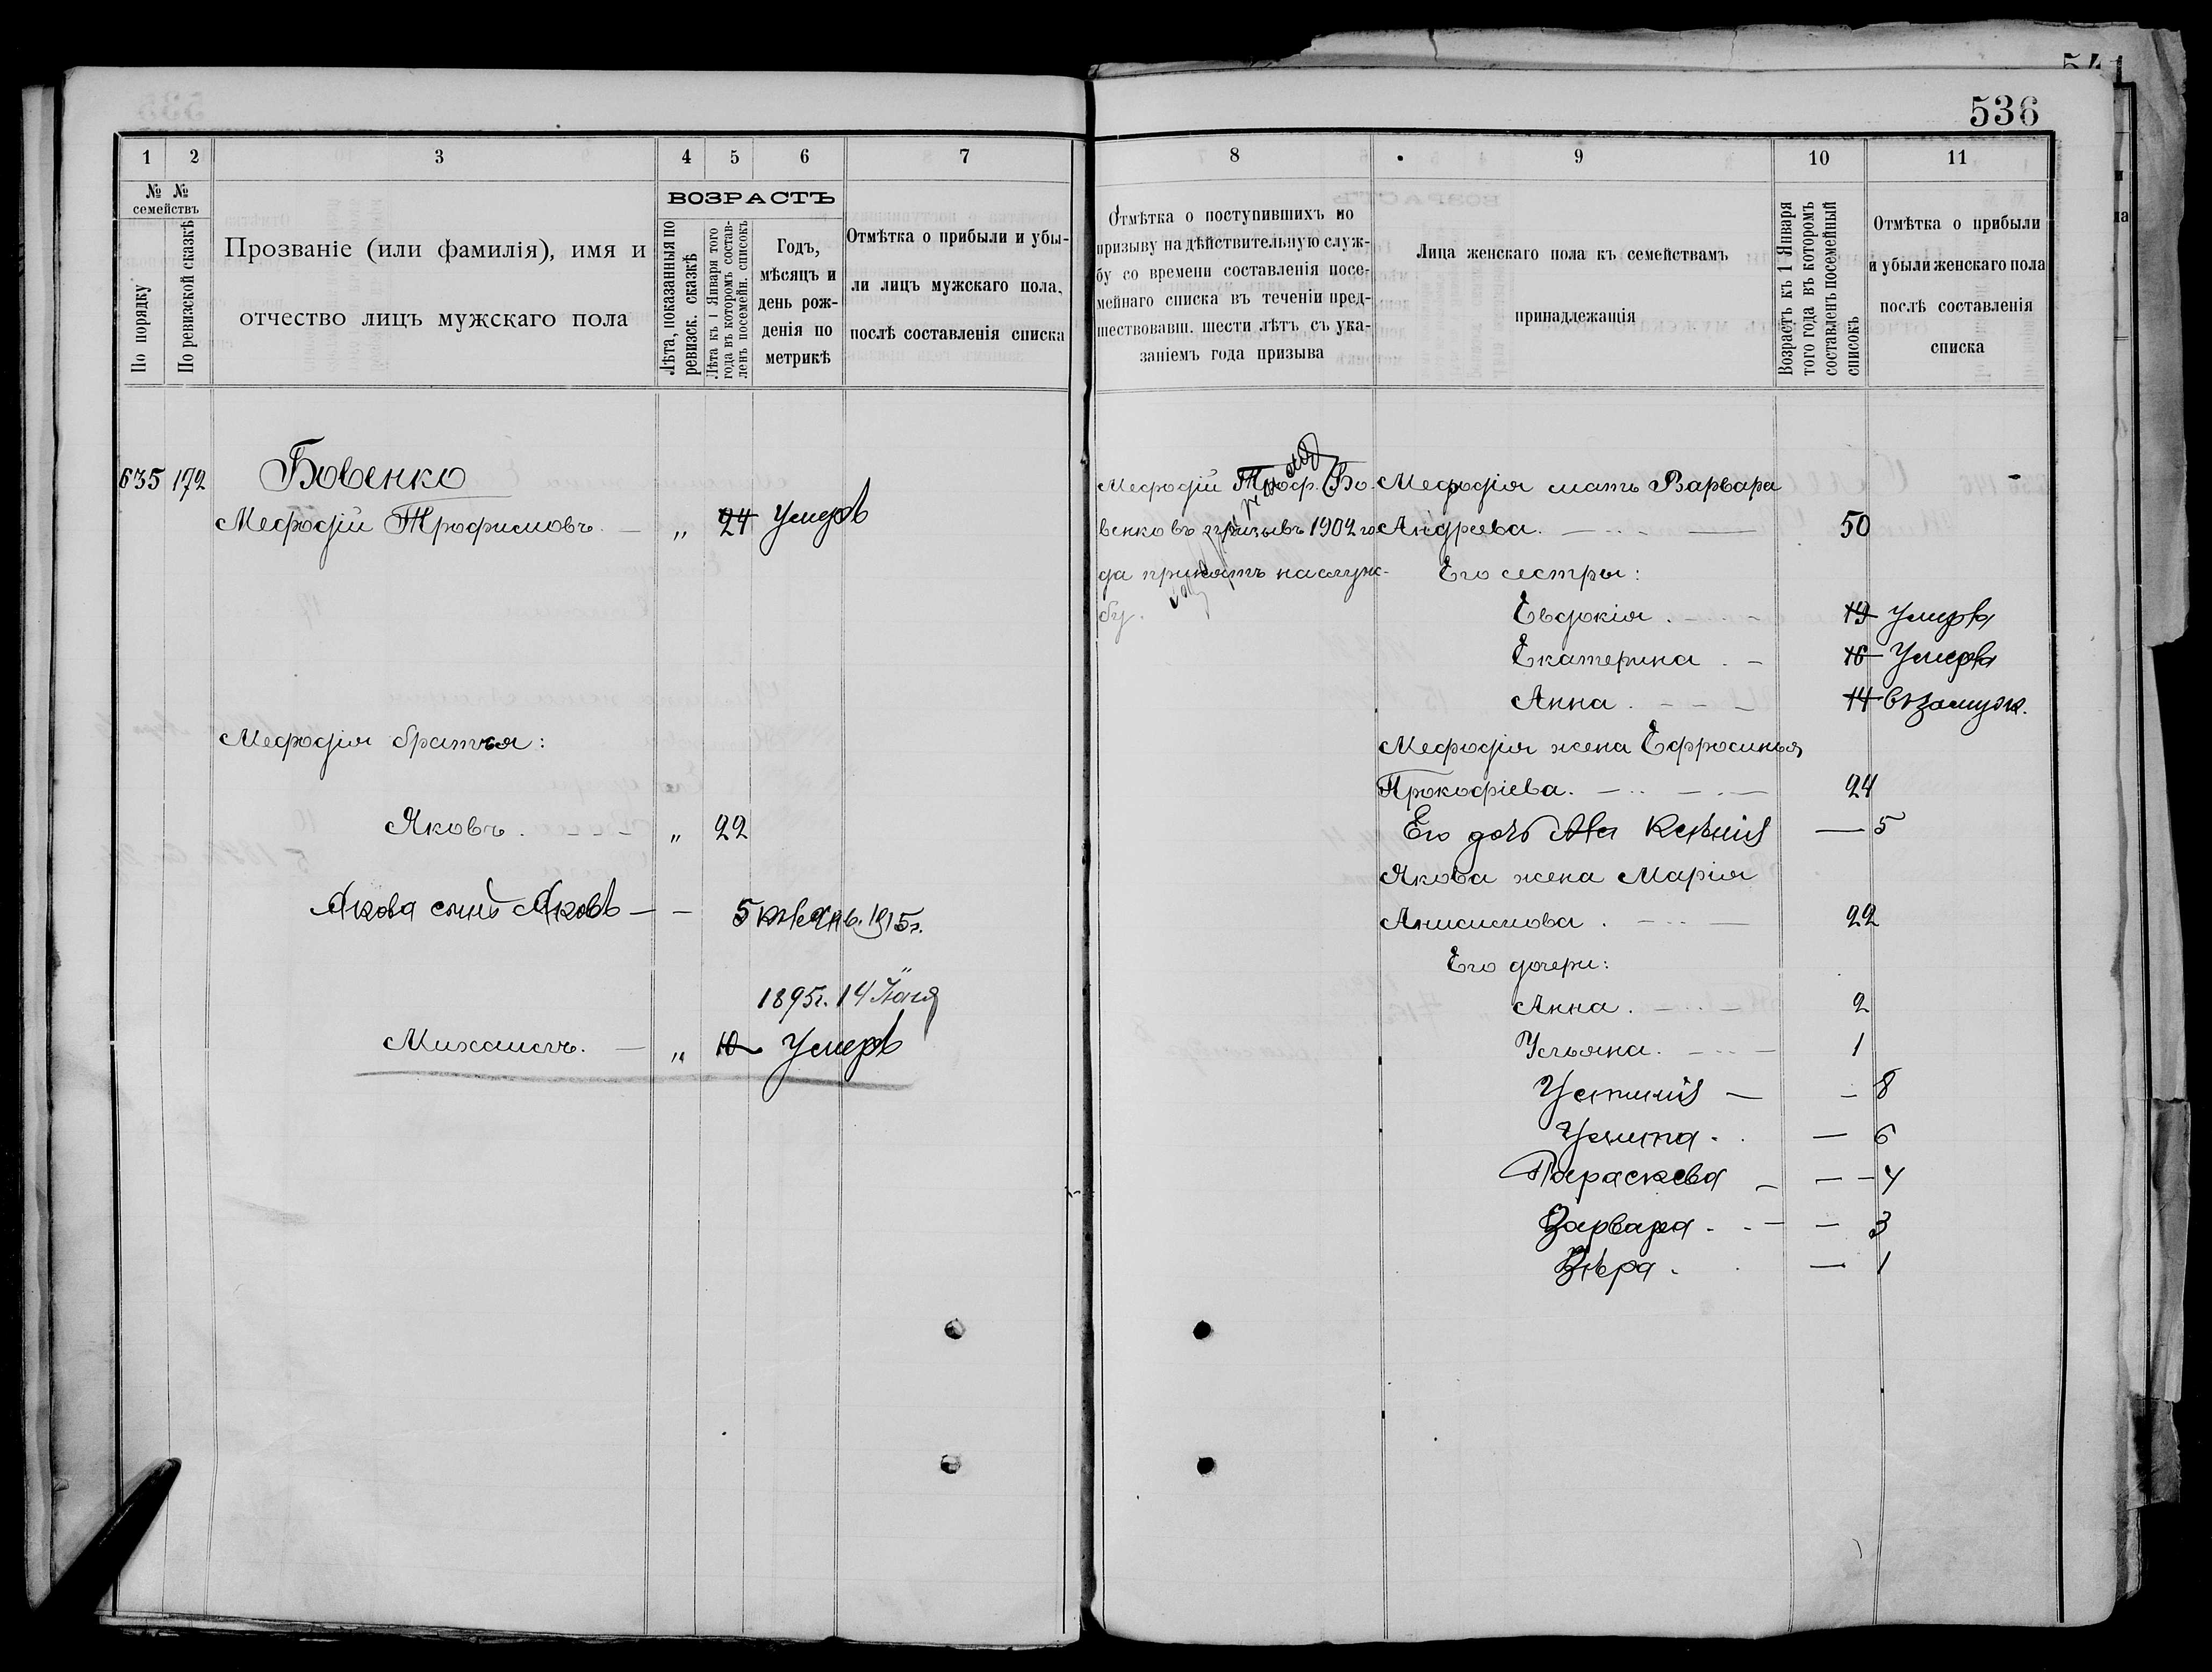 541
536
1 2 3 4 5 6 7
№ № семействъ
По порядку
По ревизской сказкѣ
Прозваніе (или фамилія), имя и
отчество лицъ мужскаго пола
ВОЗРАСТЪ
Лѣта, показанныя по
ревизск. сказкѣ
Лѣта къ 1 Января того
года въ которомъ состав-
ленъ посемейн. списокъ
Годъ,
мѣсяцъ и
день рож-
денія по
метрикѣ
Отмѣтка о прибыли и убы-
ли лицъ мужскаго пола,
послѣ составленія списка
635 172 Бовенко
Мефодій Трофимовъ. — „ 24 Умеръ
Мефодія братья:
Яковъ. — „ 22
Якова сынъ Яковъ — — 5 1915г.
1895г. 14 Іюня
Михаилъ. — „ 10 Умеръ
8 9 10 11
Отмѣтка о поступившихъ по
призыву на дѣйствительную служ-
бу со времени составленія посе-
мейнаго списка въ теченіи пред-
шествовавш. шести лѣтъ съ ука-
заніемъ года призыва
Лица женскаго пола къ семействамъ
принадлежація
Возрастъ къ 1 Января
того года въ которомъ
составленъ посемейный
списокъ
Отмѣтка о прибыли
и убыли женскаго пола
послѣ составленія
списка
Мефодій Троф. Бо-
венко въ призывъ 1902 го-
да принятъ на служ-
бу.
Мефодія мать Варвара
Андреева. — 50
Его сестры:
Евдокія. — 19 Умерла
Екатерина. — 16 Умерла
Анна. — 14 въ замуж.
Мефодія жена Ефросинья
Прокофіева. — 24
Его дочь Ксенія — 5
Якова жена Марія
Анисимова. — 22
Его дочери:
Анна. — 2
Ульяна. — 1
Устинія — — 8
Улита. — 6
Параскева — — 4
Варвара. — — 3
Вѣра. — 1